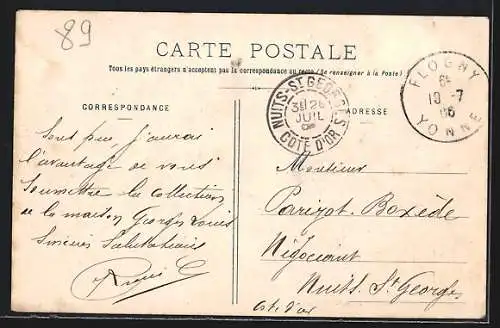 89
CARTE POSTALE
Tous les pays étrangers n'acceptent pas la correspondance au recto (Se renseigner à la Poste)
CORRESPONDANCE
Sous peu, j'aurai
l'avantage de vous
soumettre la collection
de la maison Georges Louis
Sincères Salutations
ADRESSE
NUITS-ST GEORGES
JUIL
COTE D'OR
FLOGNY
10 -7
06
YONNE
Monsieur
Parizot-Boxède
Négociant
Nuits St Georges
Cote d'or